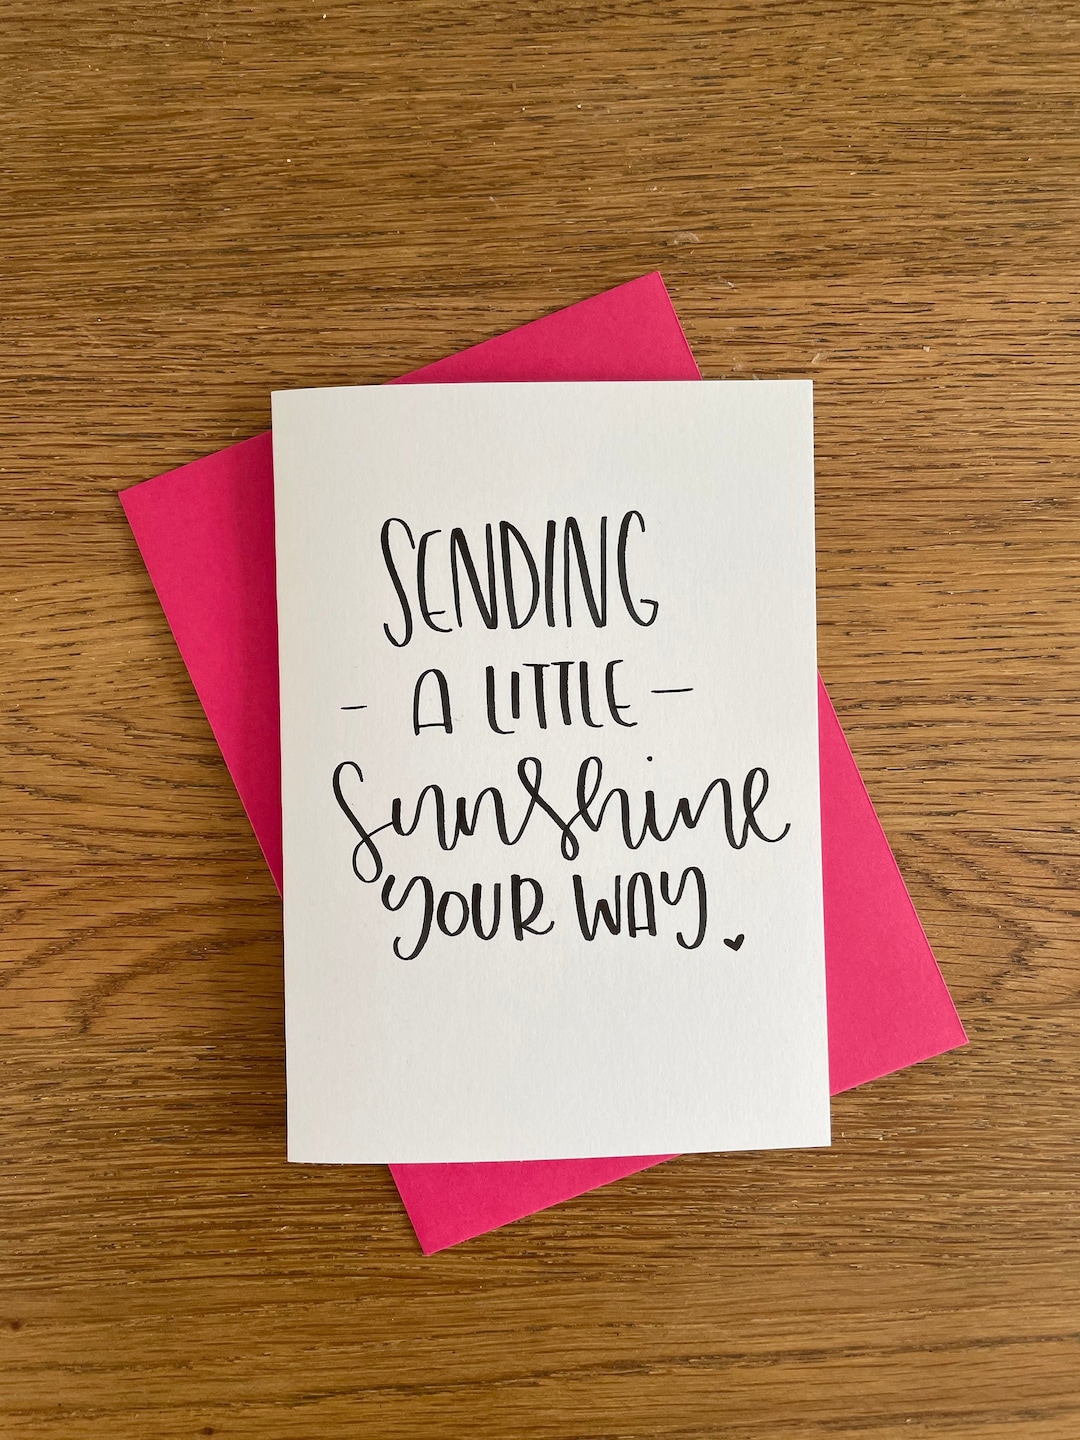 SENDING
- A LITTLE -
Sunshine
YOUR WAY